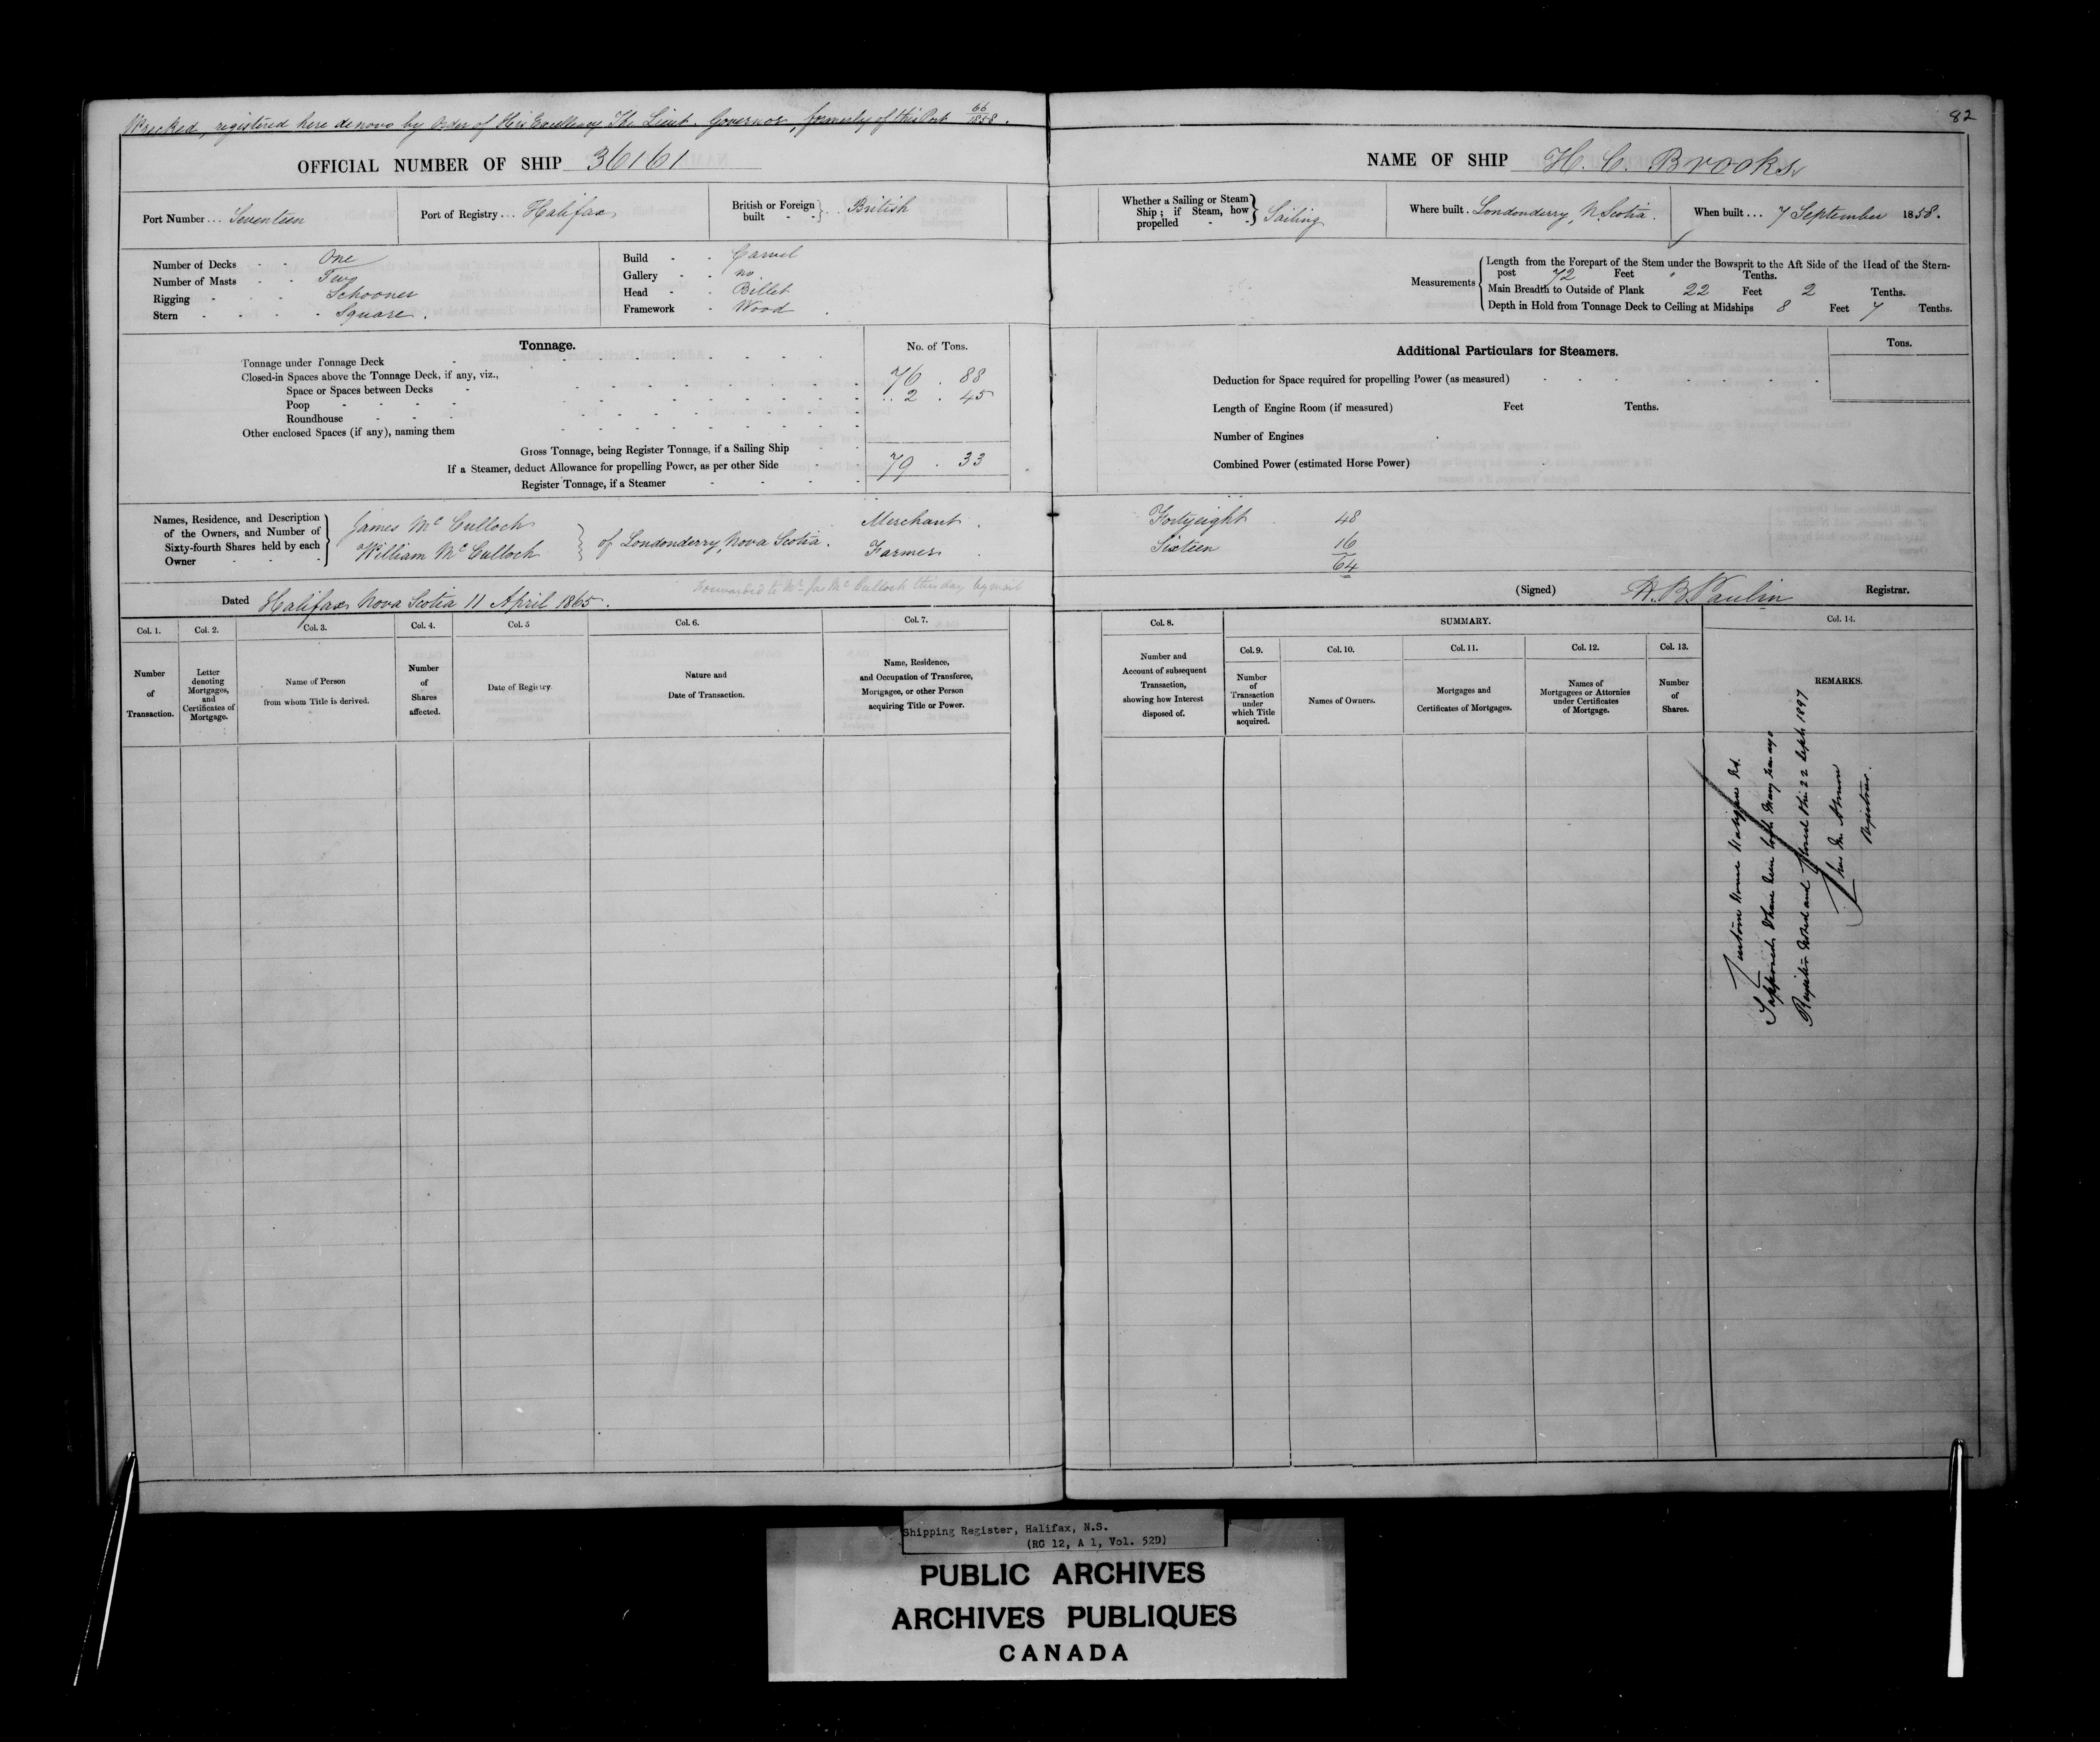 Wrecked, registered here de novo by Order of His Excellency The Lieut. Governor, formerly of this Port 66/1858.
82
OFFICIAL NUMBER OF SHIP 36161
NAME OF SHIP H. C. Brooks
Port Number ... Seventeen
Port of Registry ... Halifax
British or Foreign built - - } .. British
Whether a Sailing or Steam Ship; if Steam, how propelled - - } Sailing
Where built . Londonderry, N. Scotia.
When built ... 7 September 1858.
Number of Decks - - One
Number of Masts - - Two
Rigging - - - Schooner
Stern - - - - Square.
Build - - Carvel
Gallery - - no
Head - - Billet
Framework - Wood
Measurements { Length from the Forepart of the Stem under the Bowsprit to the Aft Side of the Head of the Stern-
post 72 Feet " Tenths.
Main Breadth to Outside of Plank 22 Feet 2 Tenths.
Depth in Hold from Tonnage Deck to Ceiling at Midships 8 Feet 7 Tenths.
Tonnage.
No. of Tons.
Tonnage under Tonnage Deck
76 . 88
Closed-in Spaces above the Tonnage Deck, if any, viz.,
Space or Spaces between Decks
.. 2 . 45
Poop
Roundhouse
Other enclosed Spaces (if any), naming them
Gross Tonnage, being Register Tonnage, if a Sailing Ship
79 . 33
If a Steamer, deduct Allowance for propelling Power, as per other Side
Register Tonnage, if a Steamer
Additional Particulars for Steamers.
Tons.
Deduction for Space required for propelling Power (as measured)
Length of Engine Room (if measured) Feet Tenths.
Number of Engines
Combined Power (estimated Horse Power)
Names, Residence, and Description
of the Owners, and Number of
Sixty-fourth Shares held by each
Owner - - - }
James McCulloch
William McCulloch } of Londonderry, Nova Scotia.
Merchant.
Farmer.
Fortyeight 48
Sixteen 16
64
Forwarded to Mr Jas McCulloch this day by mail
Dated Halifax Nova Scotia 11 April 1865.
(Signed) H. B. Paulin Registrar.
Col. 1.
Col. 2.
Col. 3.
Col. 4.
Col. 5
Col. 6.
Col. 7.
Col. 8.
SUMMARY.
Col. 14.
Col. 9.
Col. 10.
Col. 11.
Col. 12.
Col. 13.
Number
of
Transaction.
Letter
denoting
Mortgages,
and
Certificates of
Mortgage.
Name of Person
from whom Title is derived.
Number
of
Shares
affected.
Date of Registry.
Nature and
Date of Transaction.
Name, Residence,
and Occupation of Transferee,
Mortgagee, or other Person
acquiring Title or Power.
Number and
Account of subsequent
Transaction,
showing how Interest
disposed of.
Number
of
Transaction
under
which Title
acquired.
Names of Owners.
Mortgages and
Certificates of Mortgages.
Names of
Mortgagees or Attornies
under Certificates
of Mortgage.
Number
of
Shares.
REMARKS.
Custom House Halifax N.S.
Supposed to have been lost many years ago
Register noted and closed this 22 Sept. 1897
Registrar.
Shipping Register, Halifax, N.S.
(RG 12, A 1, Vol. 52D)
PUBLIC ARCHIVES
ARCHIVES PUBLIQUES
CANADA